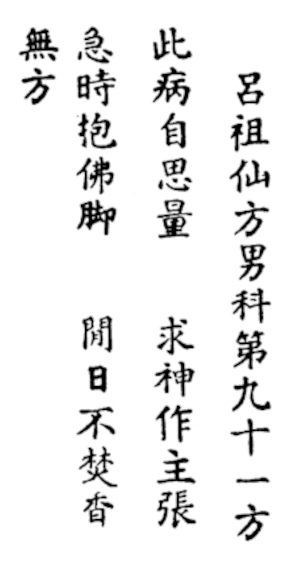 呂祖仙方男科第九十一方
此病自思量　求神作主張
急時抱佛脚　閒日不焚香
無方